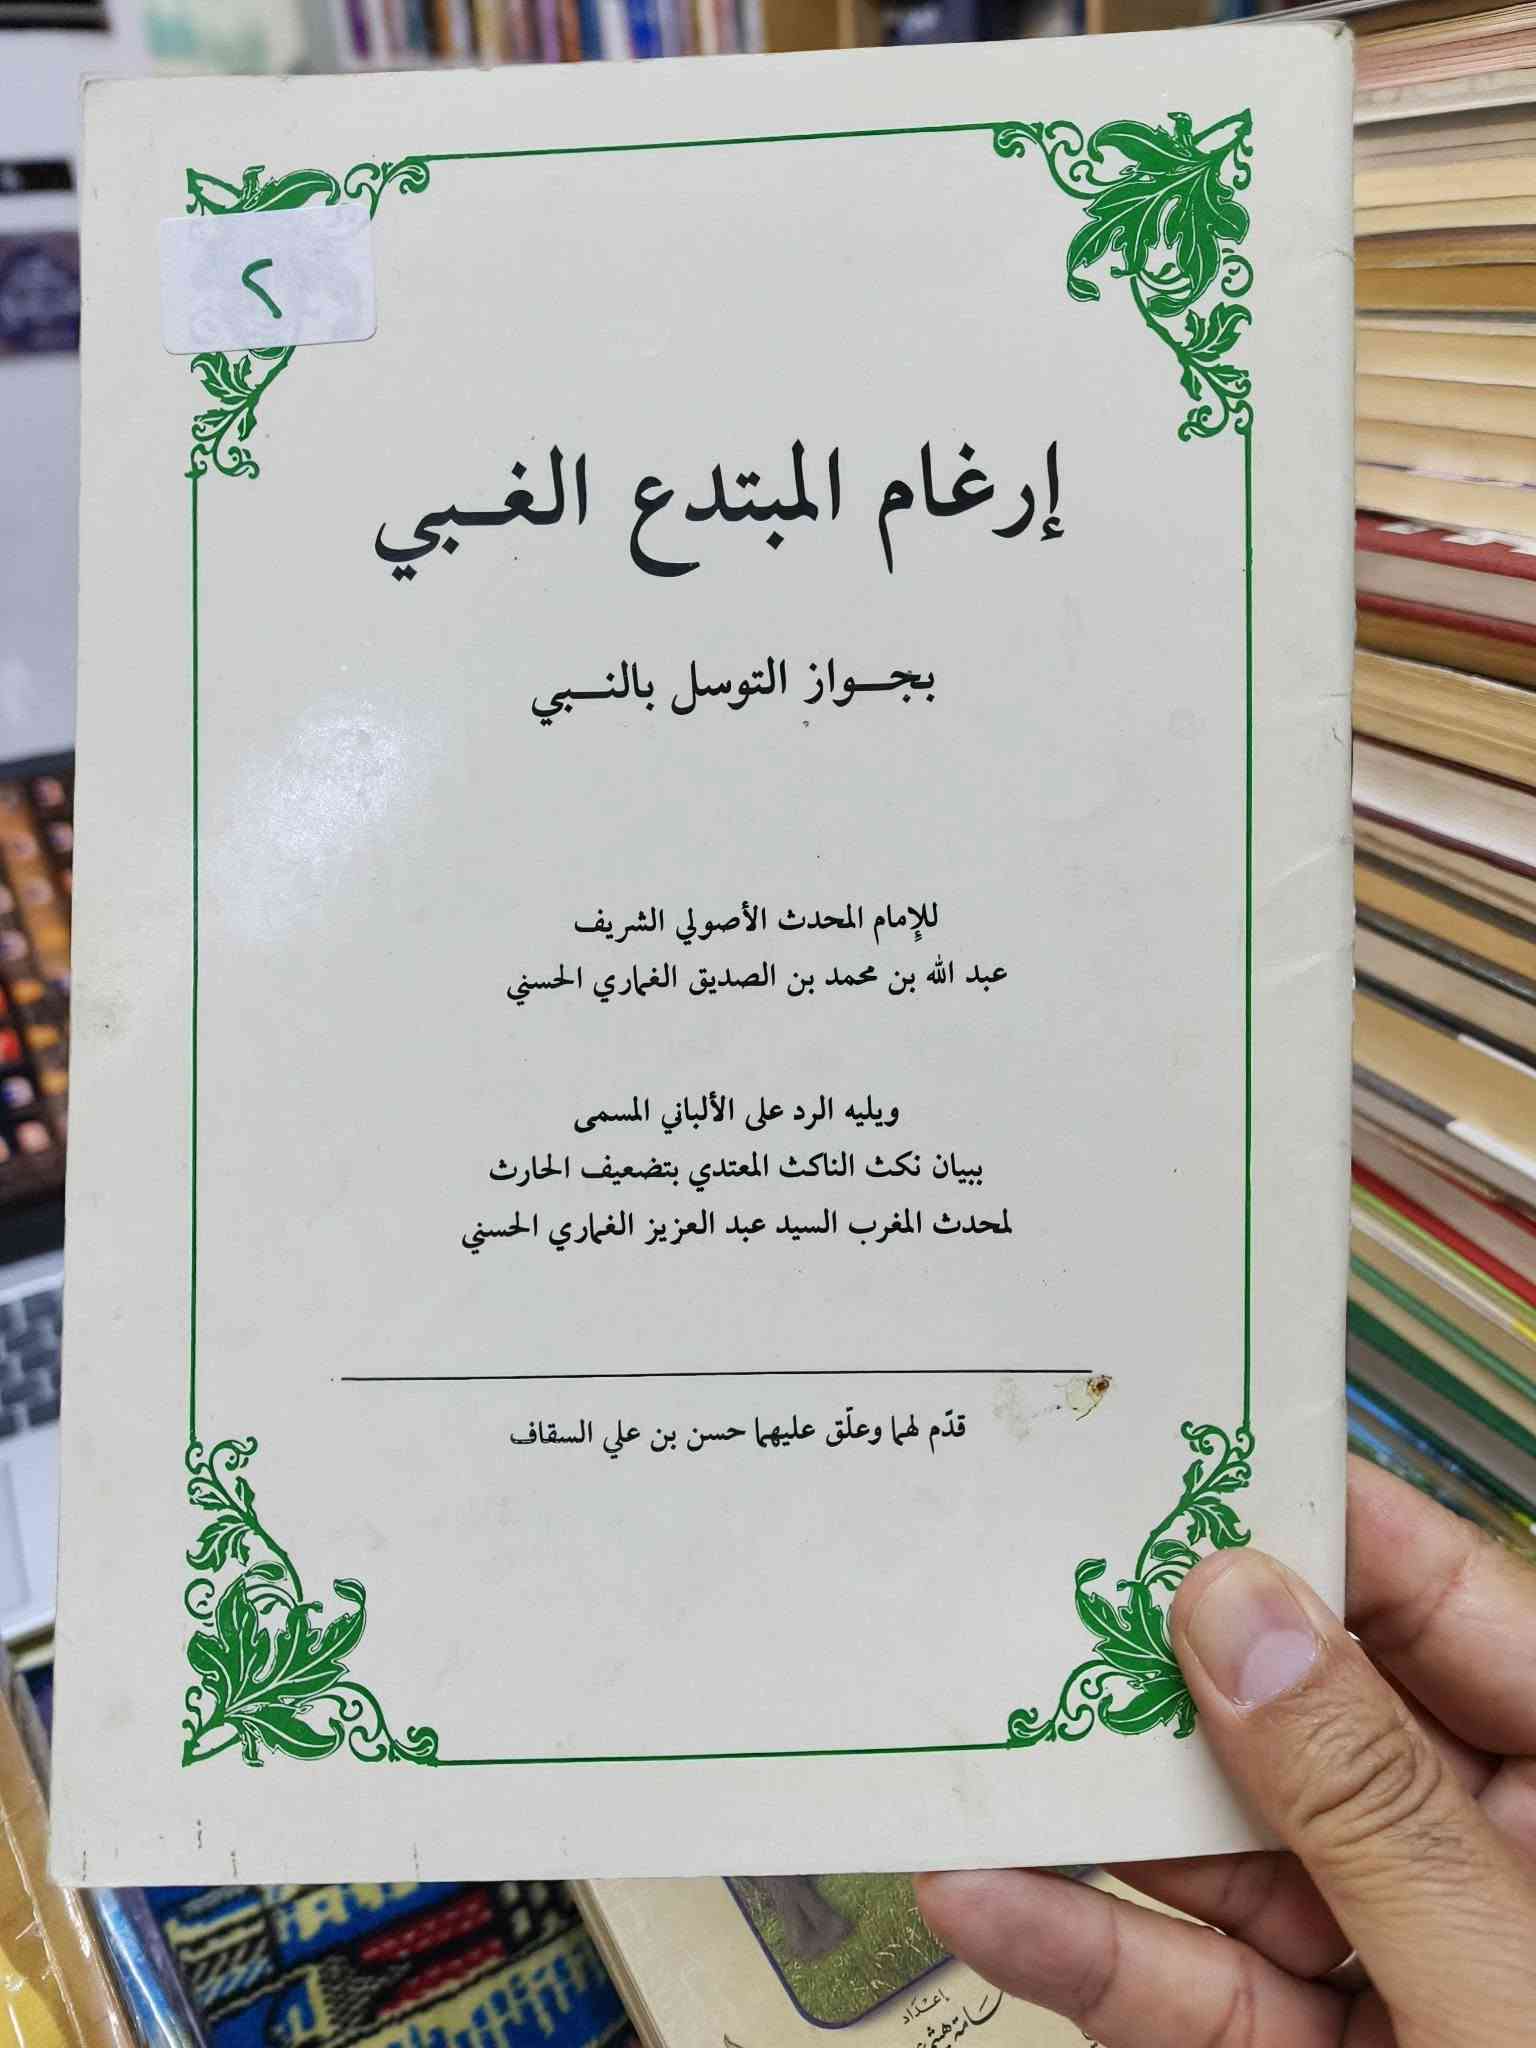 ٢
إرغام المبتدع الغبي
بجواز التوسل بالنبي
للإمام المحدث الأصولي الشريف
عبد الله بن محمد بن الصديق الغماري الحسني
ويليه الرد على الألباني المسمى
ببيان نكث الناكث المعتدي بتضعيف الحارث
لمحدث المغرب السيد عبد العزيز الغماري الحسني
قدّم لهما وعلّق عليهما حسن بن علي السقاف
إعداد